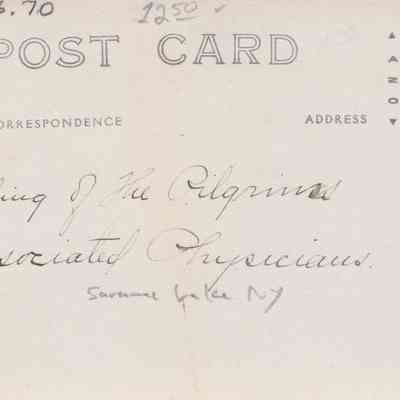 6.70 1250 ✓
POST CARD
ORRESPONDENCE ADDRESS
ing of the Pilgrims
sociated Physicians.
Saranac Lake NY
▲ A N O ▼